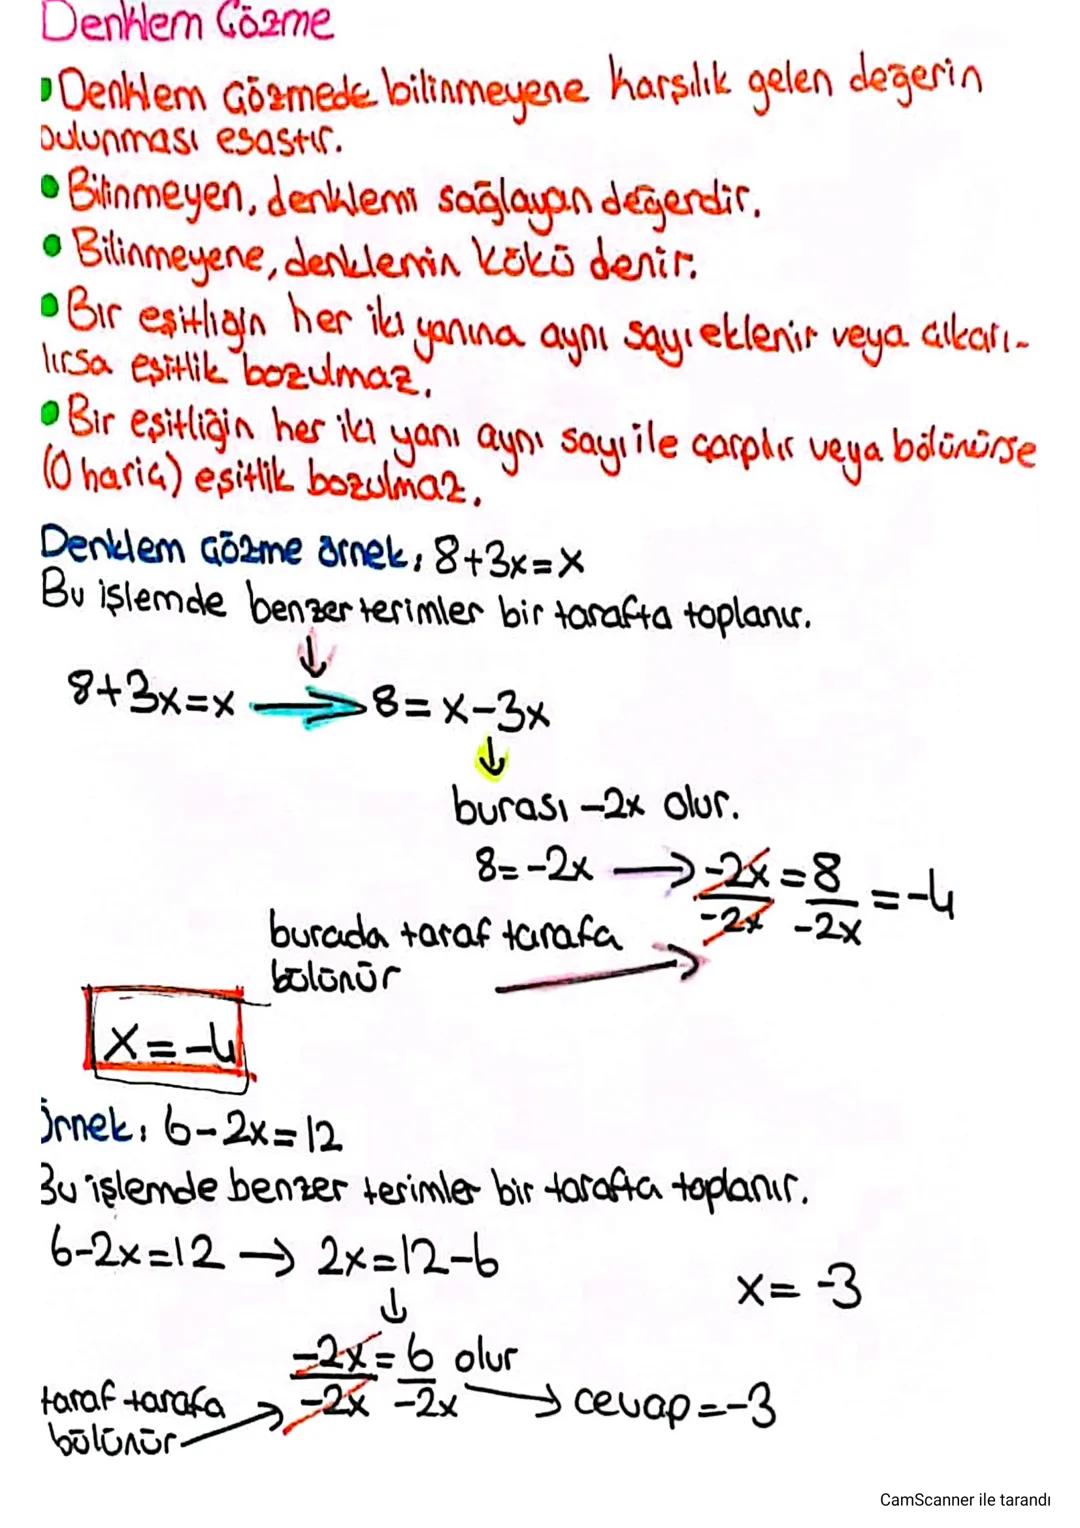 Denklem Çözme
Denklem çözmede bilinmeyene karşılık gelen değerin
bulunması esastır.
Bilinmeyen, denklemi sağlayan değerdir.
Bilinmeyene, denklemin kökü denir.
Bir eşitliğin her iki yanına aynı sayı eklenir veya çıkarı-
lırsa eşitlik bozulmaz.
Bir eşitliğin her iki yanı aynı sayı ile çarpılır veya bölünürse
(0 hariç) eşitlik bozulmaz.
Denklem çözme örnek: 8+3x=x
Bu işlemde benzer terimler bir tarafta toplanır.
↓
8+3x=x → 8=x-3x
↓
burası -2x olur.
8=-2x → -2x/-2x = 8/-2x = -4
burada taraf tarafa
bölünür →
x=-4
Örnek: 6-2x=12
Bu işlemde benzer terimler bir tarafta toplanır.
6-2x=12 → 2x=12-6
x=-3
↓
-2x/-2x = 6/-2x olur → cevap=-3
taraf tarafa
bölünür →
CamScanner ile tarandı